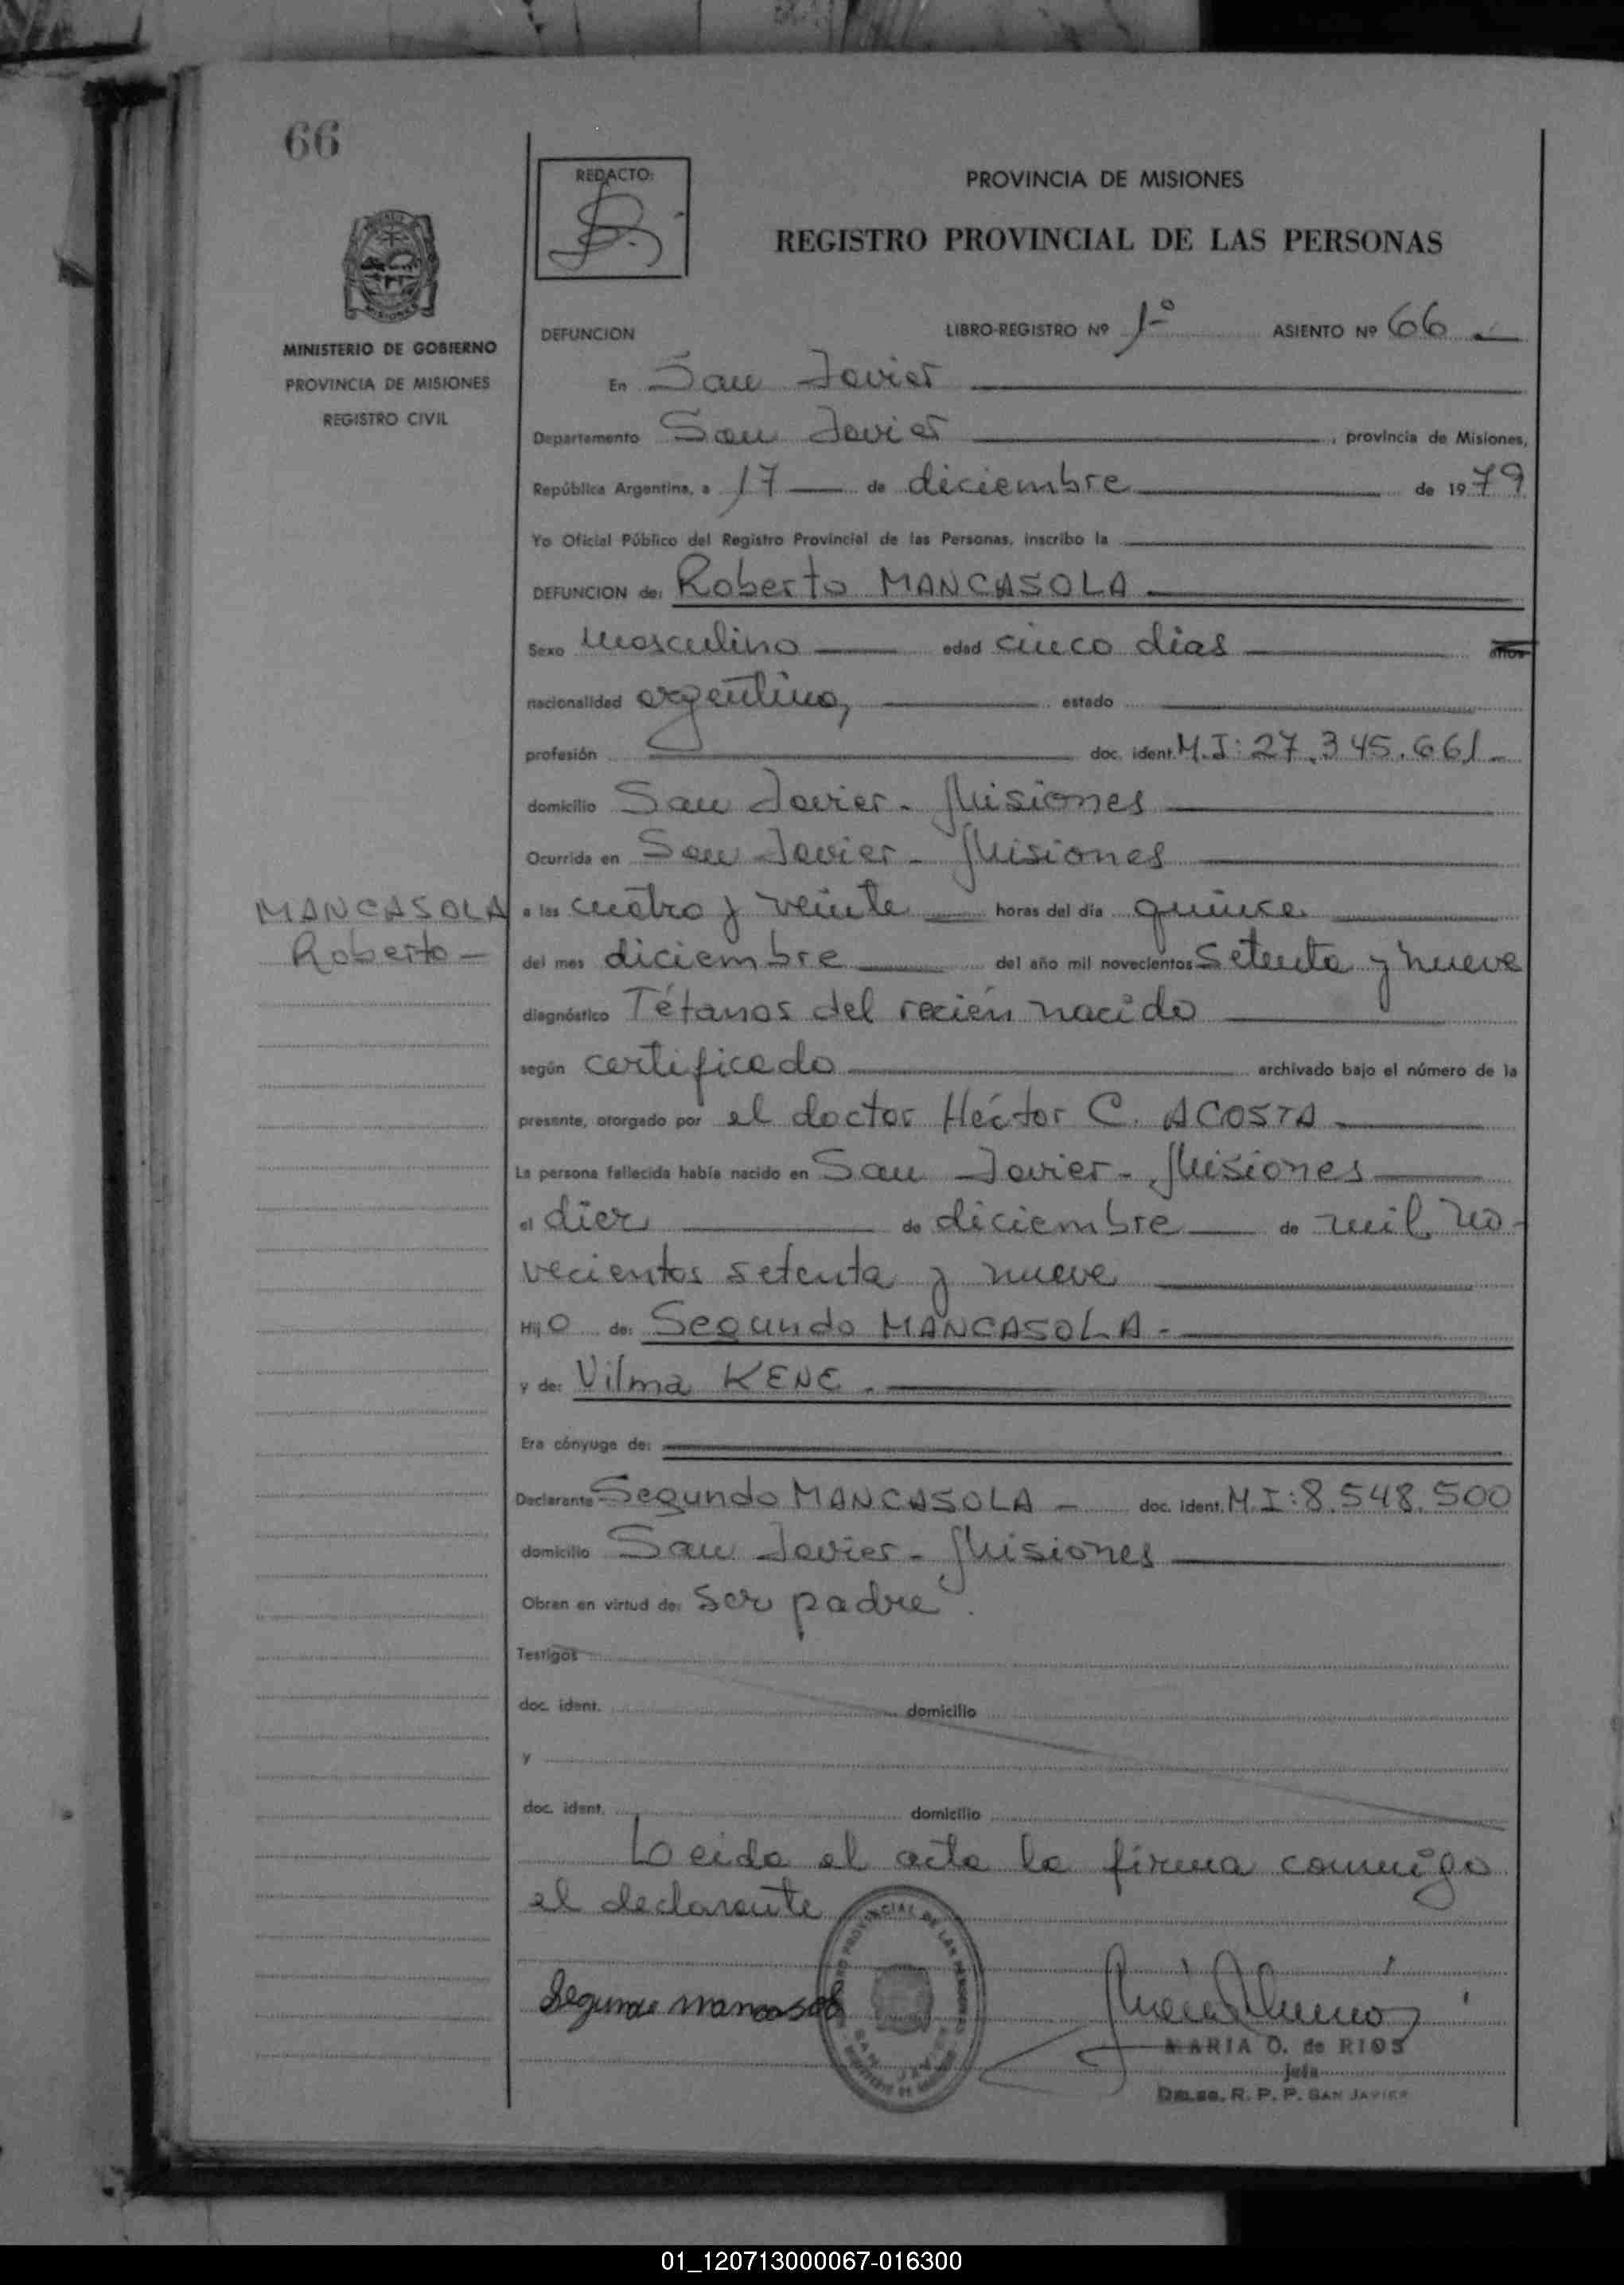 66
REDACTO:
PROVINCIA DE MISIONES
REGISTRO PROVINCIAL DE LAS PERSONAS
MINISTERIO DE GOBIERNO
PROVINCIA DE MISIONES
REGISTRO CIVIL
DEFUNCION LIBRO-REGISTRO Nº 1º ASIENTO Nº 66
En San Javier
Departamento San Javier, provincia de Misiones,
República Argentina, a 17 de diciembre de 1979
Yo Oficial Público del Registro Provincial de las Personas, inscribo la
DEFUNCION de: Roberto MANCASOLA
Sexo masculino edad cinco días años
nacionalidad argentino, estado
profesión doc. ident. M.I: 27.345.661
domicilio San Javier - Misiones
Ocurrida en San Javier - Misiones
MANCASOLA
Roberto
a las cuatro y veinte horas del día quince
del mes diciembre del año mil novecientos setenta y nueve
diagnóstico Tétanos del recién nacido
según certificado archivado bajo el número de la
presente, otorgado por el doctor Héctor C. ACOSTA
La persona fallecida había nacido en San Javier - Misiones
el diez de diciembre de mil no-
vecientos setenta y nueve
Hijo de: Segundo MANCASOLA -
y de: Vilma KENE.
Era cónyuge de:
Declarante Segundo MANCASOLA - doc. ident. M.I: 8.548.500
domicilio San Javier - Misiones
Obran en virtud de: ser padre.
Testigos
doc. ident. domicilio
y
doc. ident. domicilio
Leida el acta la firma conmigo
el declarante
Segundo mancasola
MARIA O. de RIOS
Jefa
Deleg. R. P. P. SAN JAVIER
01_120713000067-016300